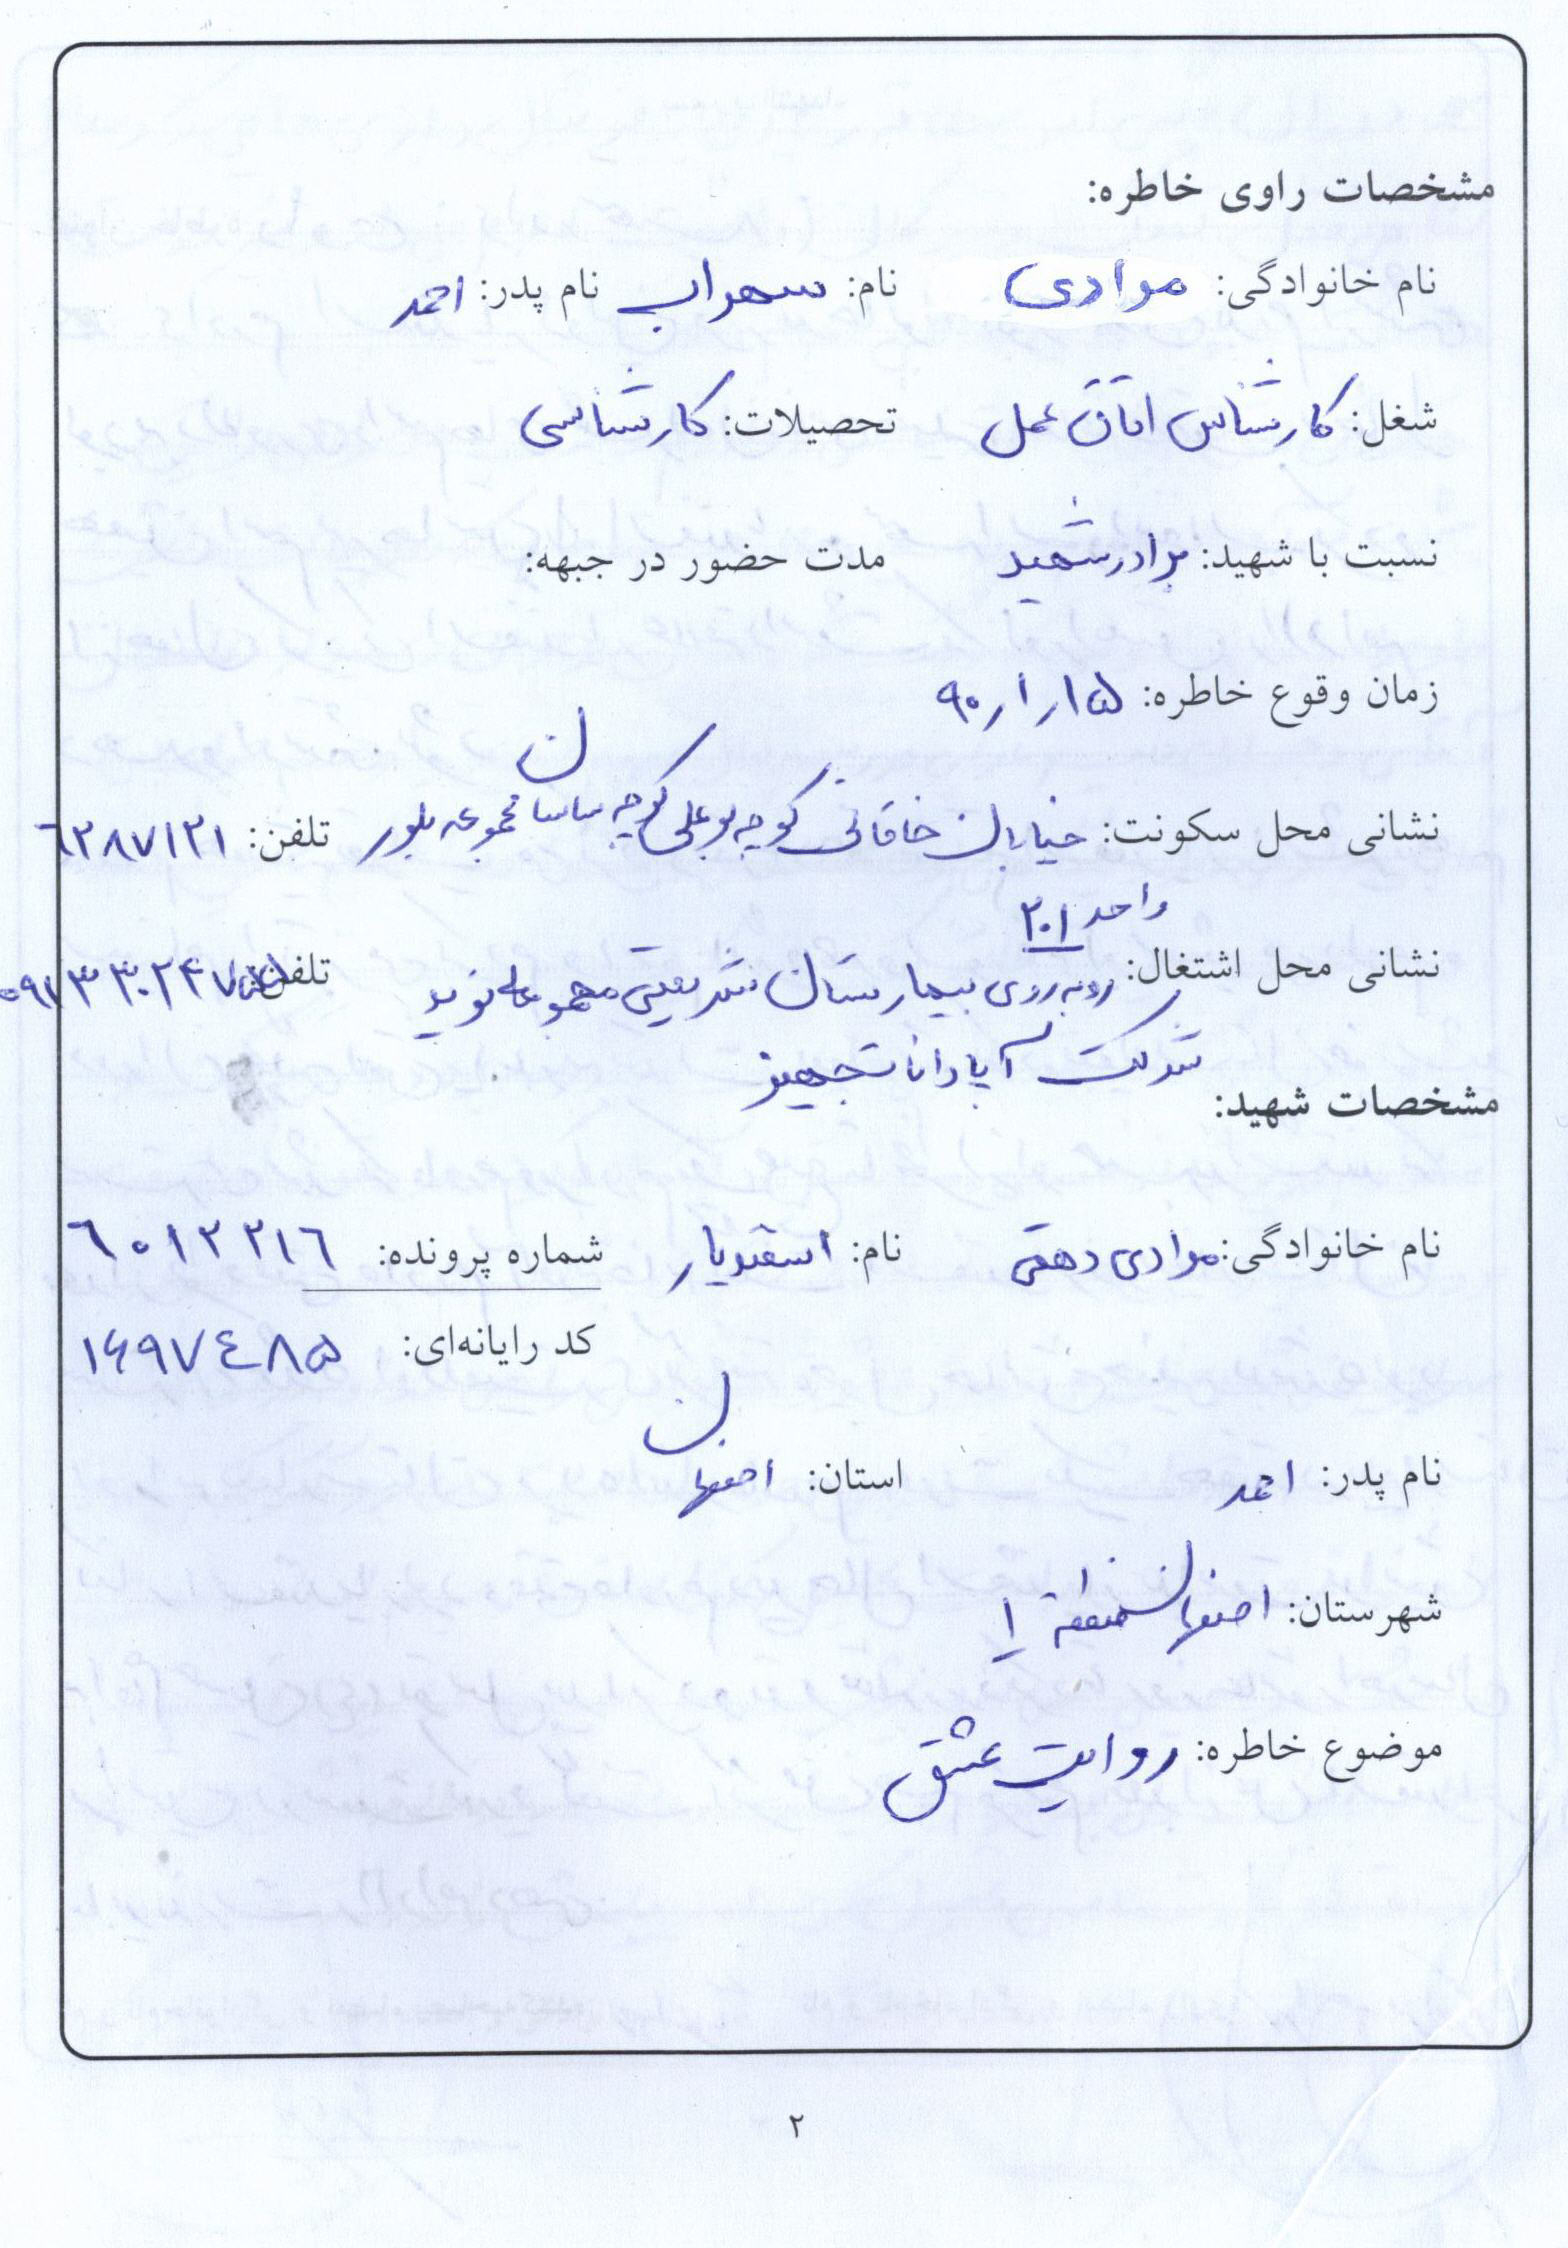 مشخصات راوی خاطره:
نام خانوادگی: مرادی نام: سهراب نام پدر: احمد
شغل: کارشناس اتاق عمل تحصیلات: کارشناسی
نسبت با شهید: برادر شهید مدت حضور در جبهه:
زمان وقوع خاطره: ۹۰/۱/۱۵
نشانی محل سکونت: خیابان خاقانی کوچه بوعلی کوچه ساسان مجموعه بلور تلفن: ۶۲۸۷۱۲۱
واحد ۲۰۱
نشانی محل اشتغال: روبه روی بیمارستان شریعتی مجموعه نوید تلفن:
شرکت آبادانا تجهیز
مشخصات شهید:
نام خانوادگی: مرادی دهقی نام: اسفندیار شماره پرونده: ۶۰۱۲۲۱۶
کد رایانه‌ای: ۱۶۹۷۴۸۵
نام پدر: احمد استان: اصفهان
شهرستان: اصفهان منطقه ۱
موضوع خاطره: روایت عشق
۲